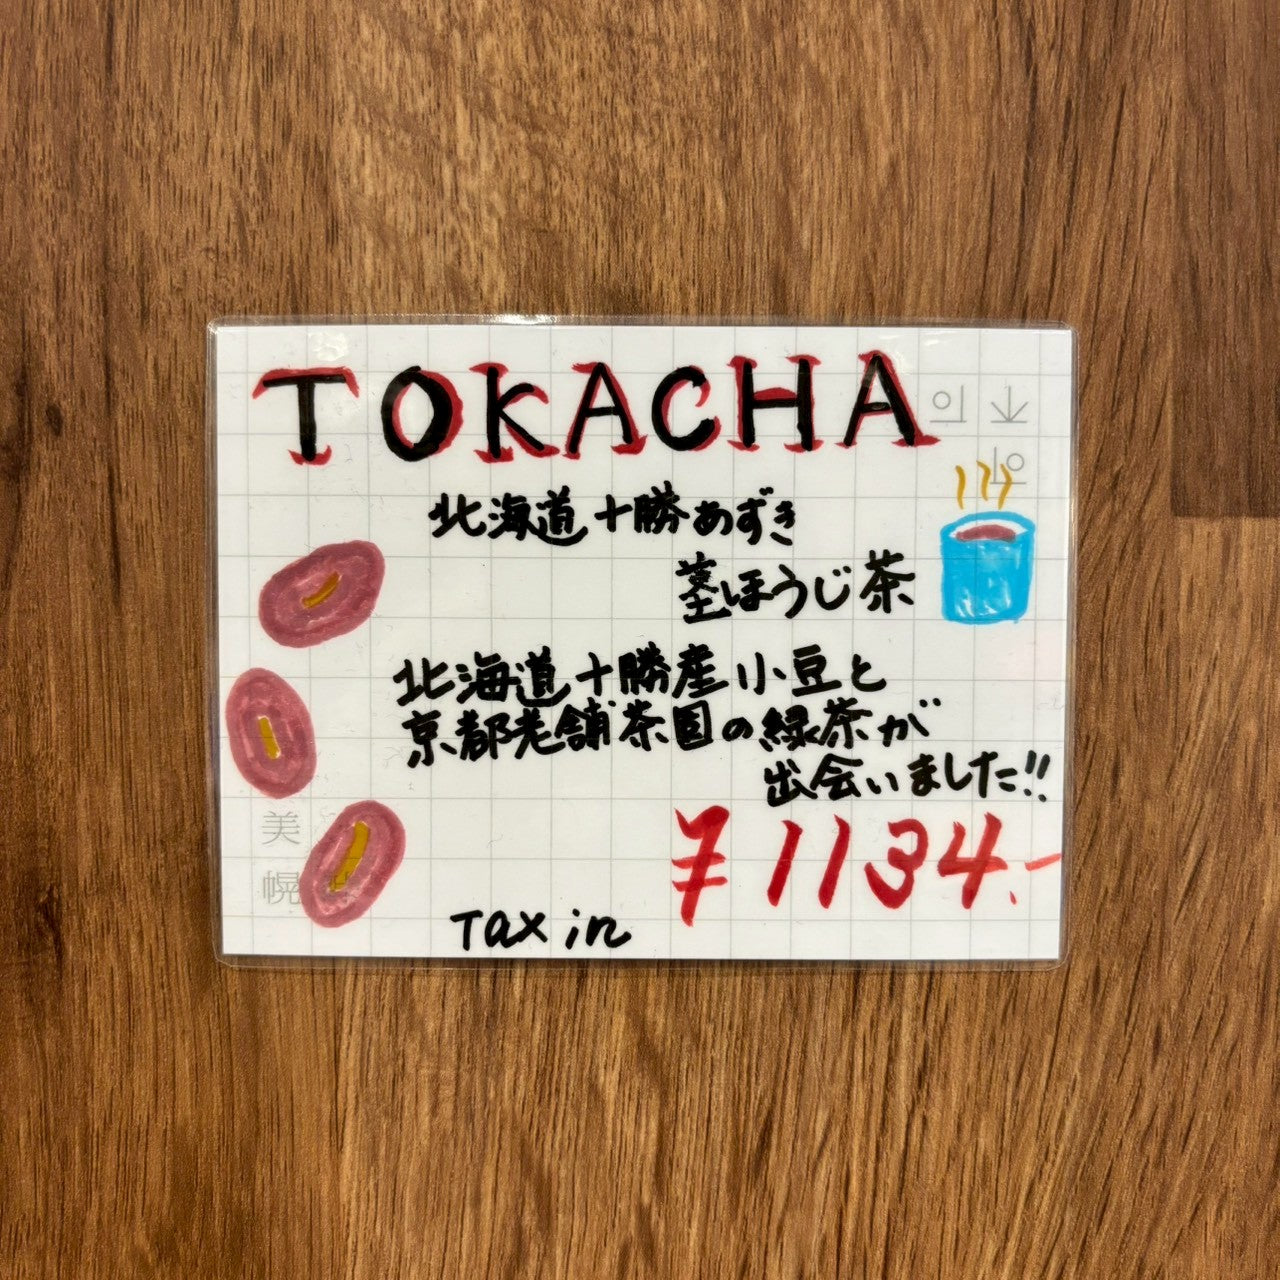 TOKACHA
北海道十勝あずき
茎ほうじ茶
北海道十勝産小豆と
京都老舗茶園の緑茶が
出会いました!!
¥1134.-
Tax in
美
幌